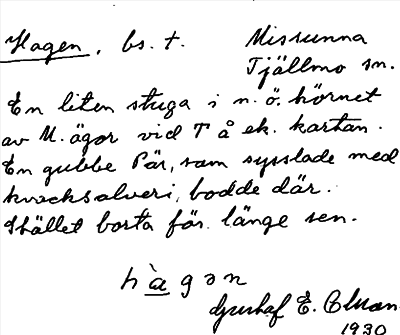 Hagen, bs. t. Missunna
Tjällmo sn.
En liten stuga i n.ö. hörnet
av M. ägor vid T å ek. kartan.
En gubbe Pär, som sysslade med
kvacksalveri, bodde där.
Stället borta för länge sen.
hàgən
Gustaf E. Olsson
1930